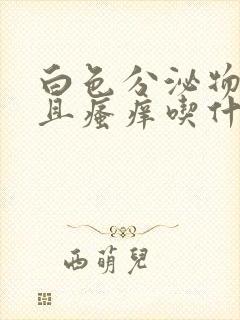 白色分泌物
且瘙痒喫什
西萌兒